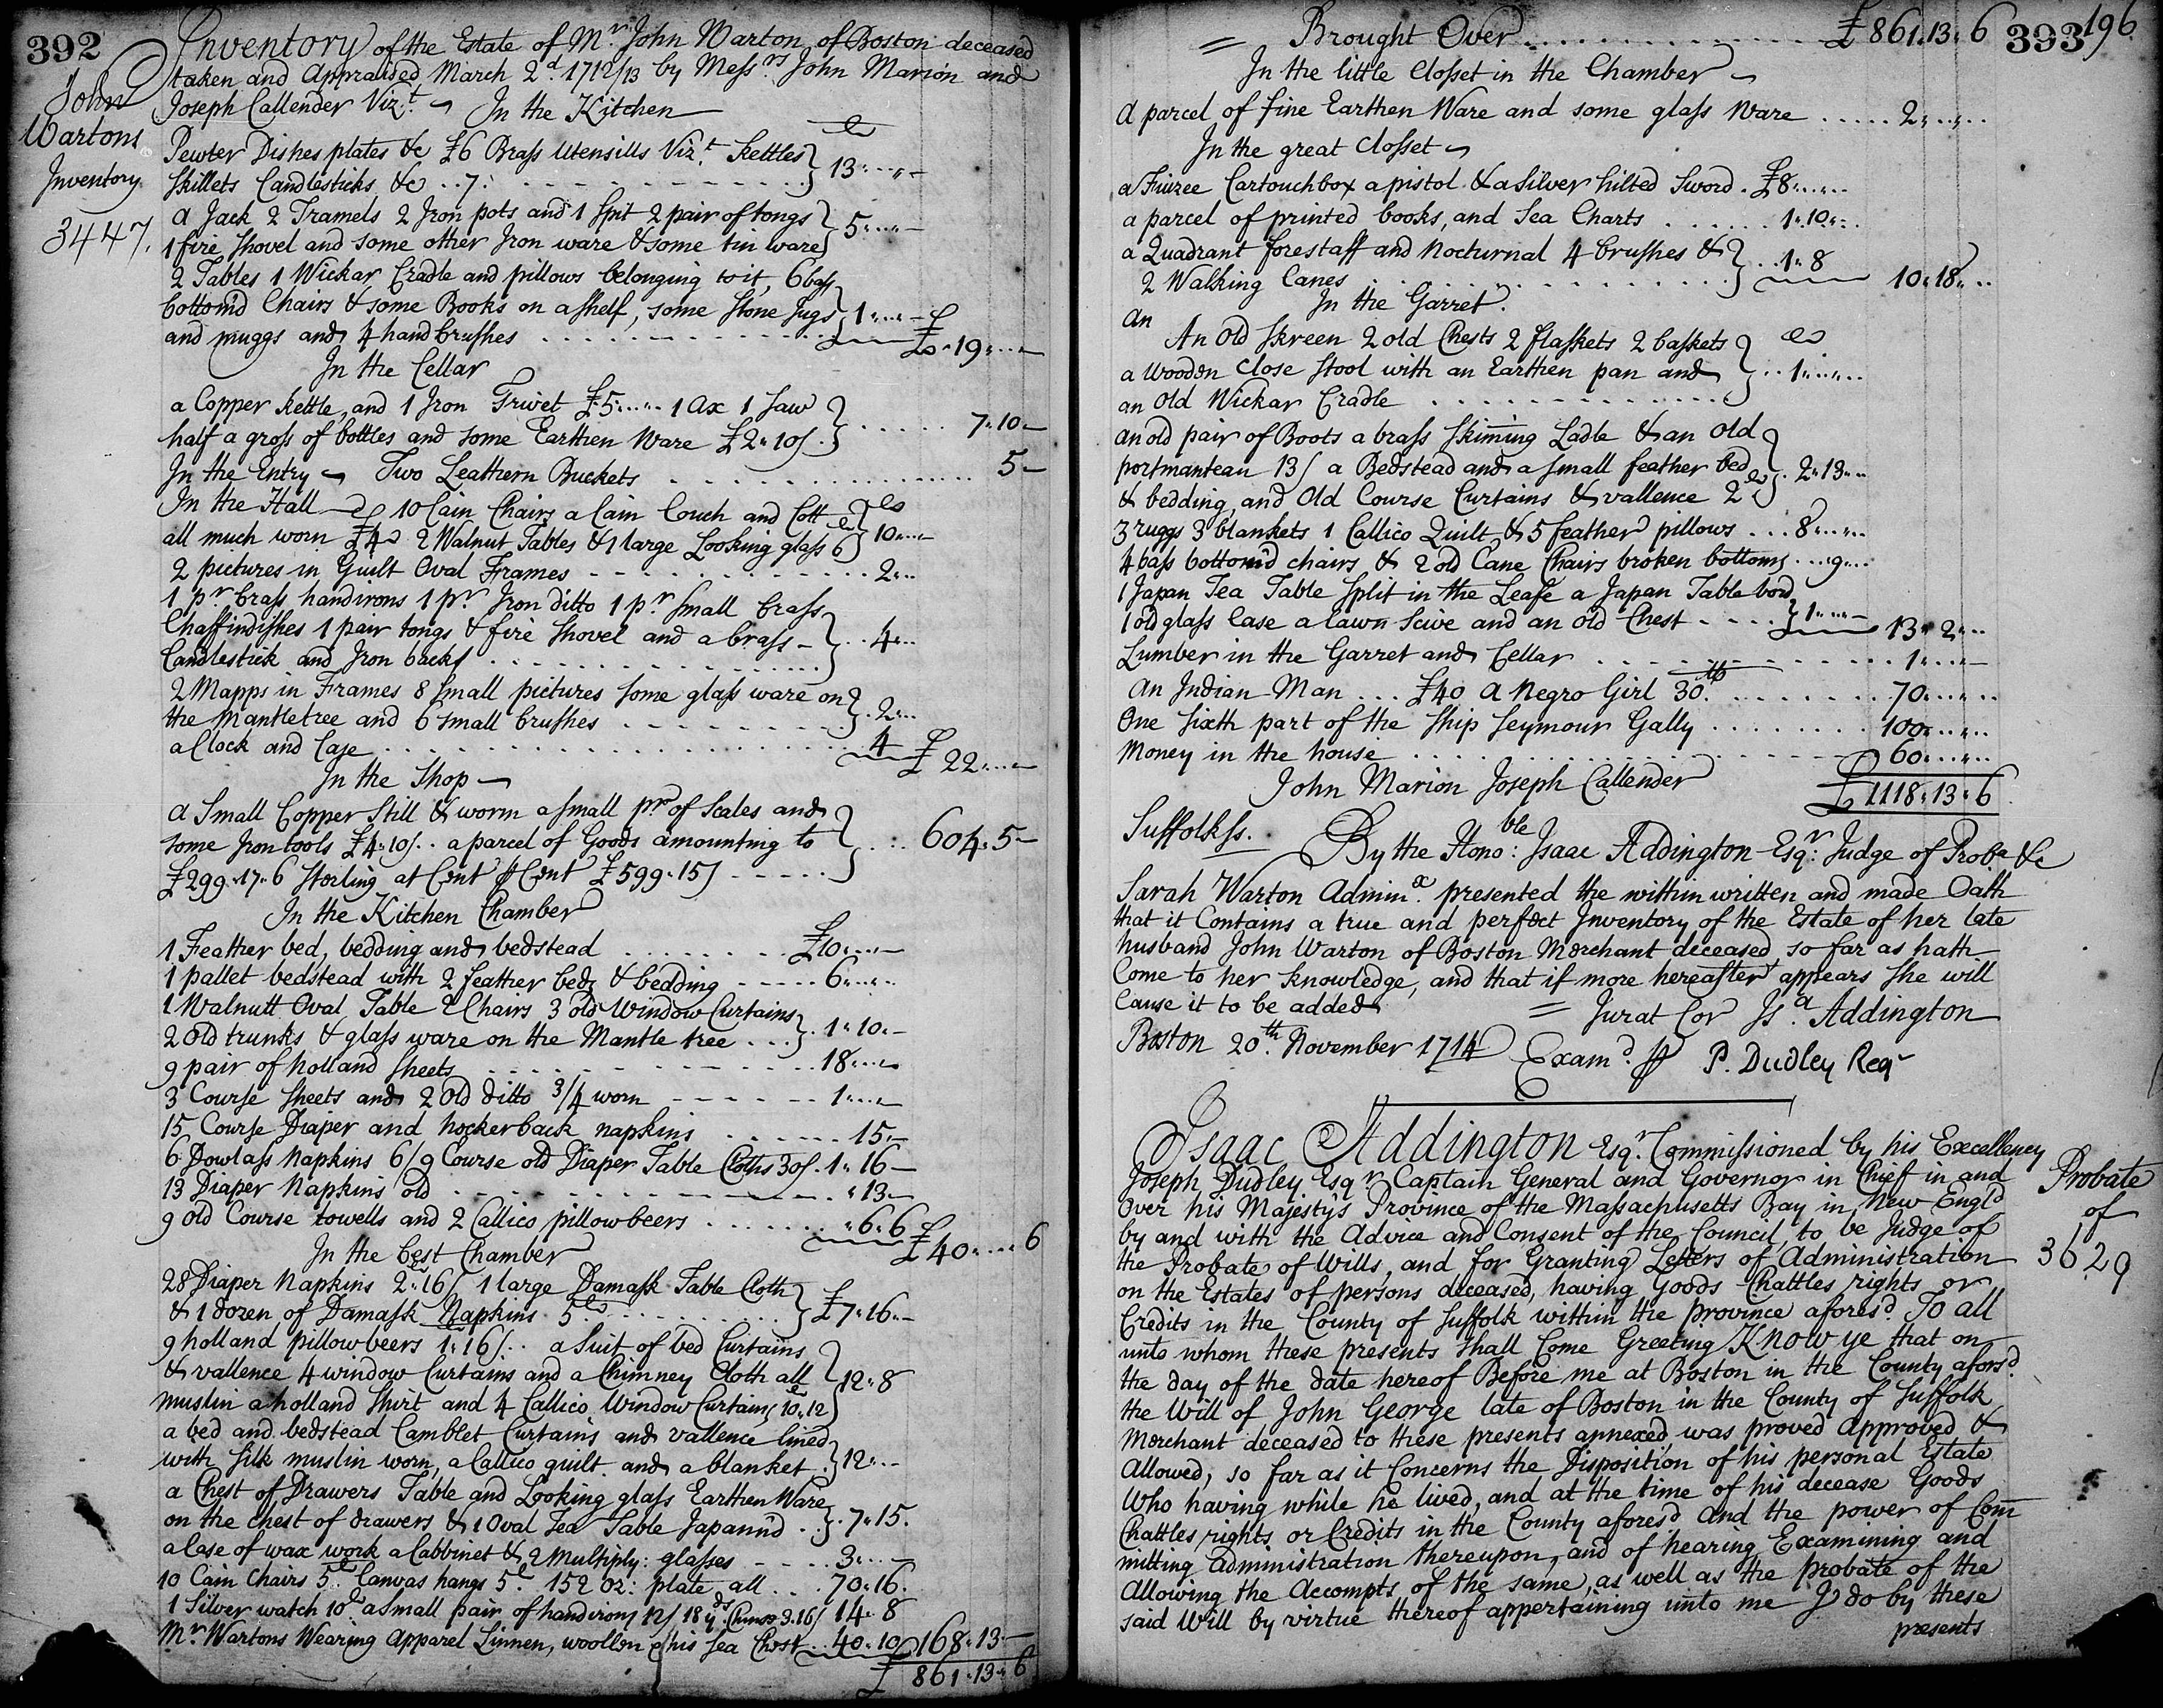 392
John Wartons Inventory
3447.
Inventory of the Estate of Mr. John Warton of Boston deceased
taken and Appraised March 2d 1712/13 by Messrs John Marion and
Joseph Callender Vizt. In the Kitchen
Pewter Dishes plates &c £6 Brass Utensills Vizt. Kettles
Skillets Candlesticks &c .. 7. } 13..
A Jack 2 Tramels 2 Iron pots and 1 Spit 2 pair of tongs
1 fire shovel and some other Iron ware & some tin ware } 5..
2 Tables 1 Wickar Cradle and pillows belonging to it, 6 bass
bottom'd Chairs & some Books on a shelf, some Stone Jugs
and muggs and 4 hand brushes } 1.. £19..
In the Cellar
a Copper kettle, and 1 Iron Trivet £5.. 1 Ax 1 Saw
half a gross of bottles and some Earthen Ware £2.10/. } 7.10
In the Entry Two Leathern Buckets 5
In the Hall 10 Cain Chairs a Cain Couch and Cott
all much worn £4 2 Walnut Tables & 1 large Looking glass 6 } 10..
2 pictures in Guilt Oval Frames 2..
1 pr. brass handirons 1 pr. Iron ditto 1 pr. small brass
Chaffindishes 1 pair tongs & fire shovel and a brass
Candlestick and Iron backs } 4..
2 Mapps in Frames 8 small pictures some glass ware on
the Mantletree and 6 small brushes } 2..
a Clock and Case 4 £22..
In the Shop
A Small Copper Still & worm a small pr. of Scales and
some Iron tools £4.10/.. a parcel of Goods amounting to
£299.17.6 Sterling at Cent ⅌ Cent £599.15/ } 604.5
In the Kitchen Chamber
1 Feather bed, bedding and bedstead £10..
1 pallet bedstead with 2 feather beds & bedding 6..
1 Walnutt Oval Table 2 Chairs 3 old Window Curtains
2 old trunks & glass ware on the Mantle tree } 1.10.
9 pair of holland Sheets 18..
3 Course Sheets and 2 Old ditto 3/4 worn 1..
15 Course Diaper and hockerback napkins 15.
6 Dowlass Napkins 6/ 9 Course old Diaper Table Cloths 30/. 1.16
13 Diaper Napkins old .13
9 old Course towells and 2 Callico pillowbeers .6.6 £40...6
In the best Chamber
28 Diaper Napkins 2.16/ 1 large Damask Table Cloth
& 1 dozen of Damask Napkins 5 } £7.16.
9 holland pillowbeers 1.16/.. a Suit of bed Curtains
& vallence 4 window Curtains and a Chimney Cloth all
muslin a holland Shirt and 4 Callico Window Curtains 10.12 } 12.8
a bed and bedstead Camblet Curtains and vallence lined
with Silk muslin worn, a Callico quilt and a blanket } 12..
a Chest of Drawers Table and Looking glass Earthen Ware
on the chest of drawers & 1 Oval Tea Table Japann'd } 7.15.
a Case of wax work a Cabbinet & 2 Multiply: glasses 3..
10 Cain Chairs 5 Canvas hangs 5 152 oz: plate all 70.16.
1 Silver watch 10 a small pair of handirons 12/ 18 yds 3.16/ 14.8
Mr. Wartons Wearing Apparel Linnen, woollen & his Sea Chest 40.10 168.13
£861.13.6
Brought Over £861.13.6 393 196
In the little Closset in the Chamber
A parcel of fine Earthen Ware and some glass ware 2..
In the great Closset
a Fuzee Cartouchbox a pistol & a Silver hilted Sword £8..
a parcel of printed books, and Sea Charts 1.10.
a Quadrant forestaff and Nocturnal 4 brushes &
2 Walking Canes } 1.8 10.18..
In the Garret.
An
An Old Skreen 2 old Chests 2 flaskets 2 baskets
a wooden Close Stool with an Earthen pan and
an Old Wickar Cradle } 1..
an old pair of Boots a brass Skiming Ladle & an Old
portmanteau 13/ a Bedstead and a small feather bed
& bedding, and Old Course Curtains & vallence 2 } 2.13..
3 ruggs 3 blankets 1 Callico Quilt & 5 feather pillows 8..
4 bass bottom'd chairs & 2 old Cane Chairs broken bottoms 9..
1 Japan Tea Table Split in the Leafe a Japan Table bord
1 old glass Case a lawn Seive and an old Chest } 1.. 13.2..
Lumber in the Garret and Cellar 1..
An Indian Man ... £40 A Negro Girl 30. 70..
One Sixth part of the Ship Seymour Gally 100..
Money in the house 60..
John Marion Joseph Callender £1118.13.6
Suffolk ss. By the Honoble: Isaac Addington Esqr: Judge of Proba &c
Sarah Warton Adminx. presented the within written and made Oath
that it Contains a true and perfect Inventory of the Estate of her late
husband John Warton of Boston Merchant deceased, so far as hath
Come to her knowledge, and that if more hereafter appears She will
Cause it to be added
= Jurat Cor Isa. Addington
Boston 20th. November 1714 Examd. ⅌ P. Dudley Regr
Isaac Addington Esqr. Commissioned by his Excellency
Joseph Dudley Esqr Captain General and Governor in Chief in and
Over his Majesty's Province of the Massachusetts Bay in New Engld
by and with the Advice and Consent of the Council, to be Judge of
the Probate of Wills, and for Granting Letters of Administration
on the Estates of persons deceased, having Goods Chattles rights or
Credits in the County of Suffolk within the province aforesd. To all
unto whom these presents shall Come Greeting Know ye that on
the day of the date hereof Before me at Boston in the County aforsd.
the Will of John George late of Boston in the County of Suffolk
Merchant deceased to these presents annexed, was proved Approved &
Allowed, so far as it Concerns the Disposition of his personal Estate
Who having while he lived, and at the time of his decease Goods
Chattles rights or Credits in the County aforesd And the power of Com
mitting Administration thereupon, and of hearing Examining and
Allowing the Accompts of the same, as well as the probate of the
said Will by virtue thereof appertaining unto me I do by these
presents
Probate
of
3629